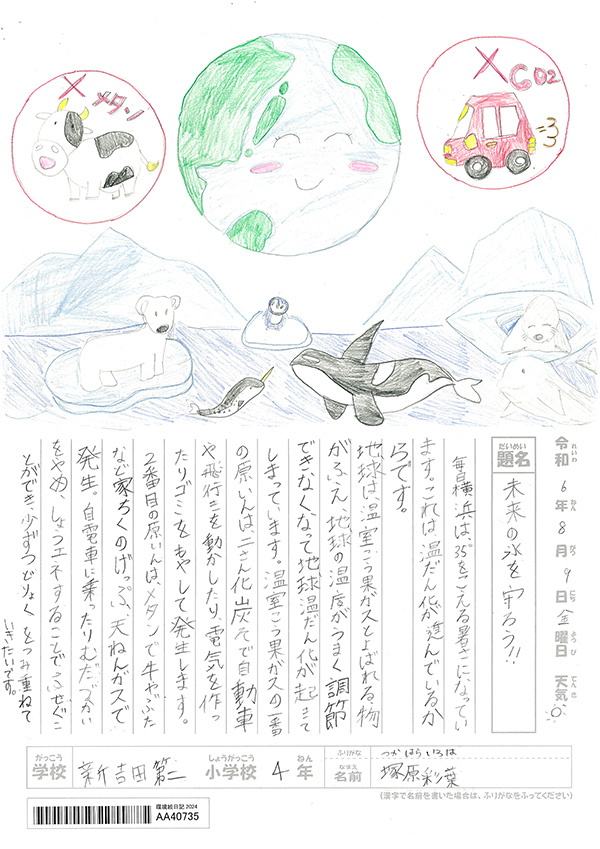 ×メタン
×CO2
令和6年8月9日金曜日 天気
れいわ ねん がつ にち ようび てんき
だいめい
題名
未来の氷を守ろう!!
毎日横浜は、35°をこえる暑さになってい
ます。これは温だん化が進んでいるか
らです。
地球は、温室こう果ガスとよばれる物
がふえ、地球の温度がうまく調節
できなくなって地球温だん化が起こって
しまっています。温室こう果ガスの一番
の原いんは、二さん化炭そで自動車
や飛行きを動かしたり、電気を作っ
たりゴミをもやして発生します。
2番目の原いんは、メタンで牛やぶた
など家ちくのげっぷ、天ねんガスで
発生。自電車に乗ったりむだづかい
をやめ、しょうエネすることでふせぐこ
とができ、少しずつどりょくをつみ重ねて
いきたいです。
がっこう しょうがっこう ねん
学校 新吉田第二 小学校 4年
ふりがな つかはらいろは
なまえ
名前 塚原彩葉
(漢字で名前を書いた場合は、ふりがなをふってください)
環境絵日記 2024
AA40735